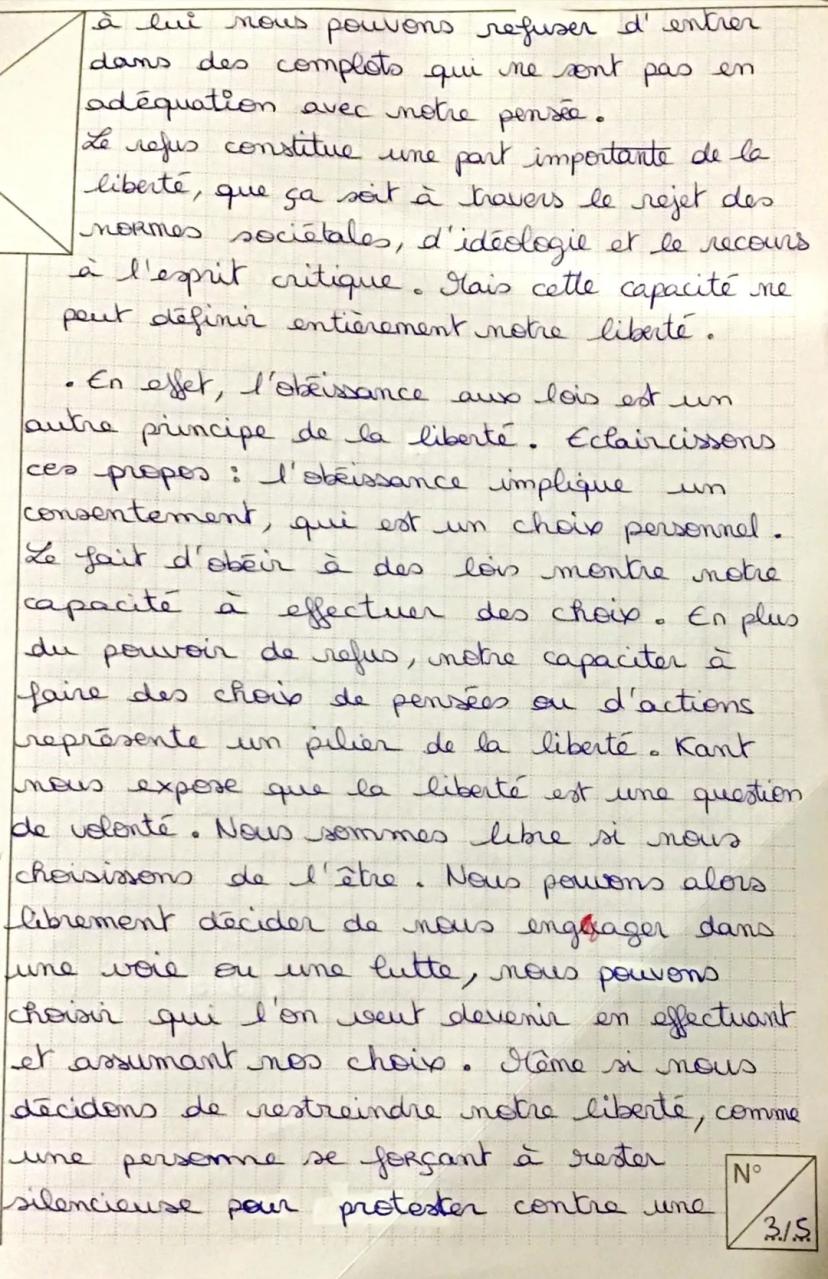 à lui nous pouvons refuser d'entrer
dans des complots qui ne sont pas en
adéquation avec notre pensée.
Le refus constitue une part importante de la
liberté, que ça soit à travers le rejet des
normes sociétales, d'idéologie et le recours
à l'esprit critique. Mais cette capacité ne
peut définir entièrement notre liberté.
. En effet, l'obéissance aux lois est un
autre principe de la liberté. Eclaircissons
ces propos : l'obéissance implique un
consentement, qui est un choix personnel.
Le fait d'obéir à des lois montre notre
capacité à effectuer des choix. En plus
du pouvoir de refus, notre capaciter à
faire des choix de pensées ou d'actions
représente un pilier de la liberté. Kant
nous expose que la liberté est une question
de volonté. Nous sommes libre si nous
choisissons de l'être. Nous pouvons alors
librement décider de nous engager dans
une voie ou une lutte, nous pouvons
choisir qui l'on veut devenir en effectuant
et assumant nos choix. Même si nous
décidons de restreindre notre liberté, comme
une personne se forçant à rester
silencieuse pour protester contre une
N°
3/5